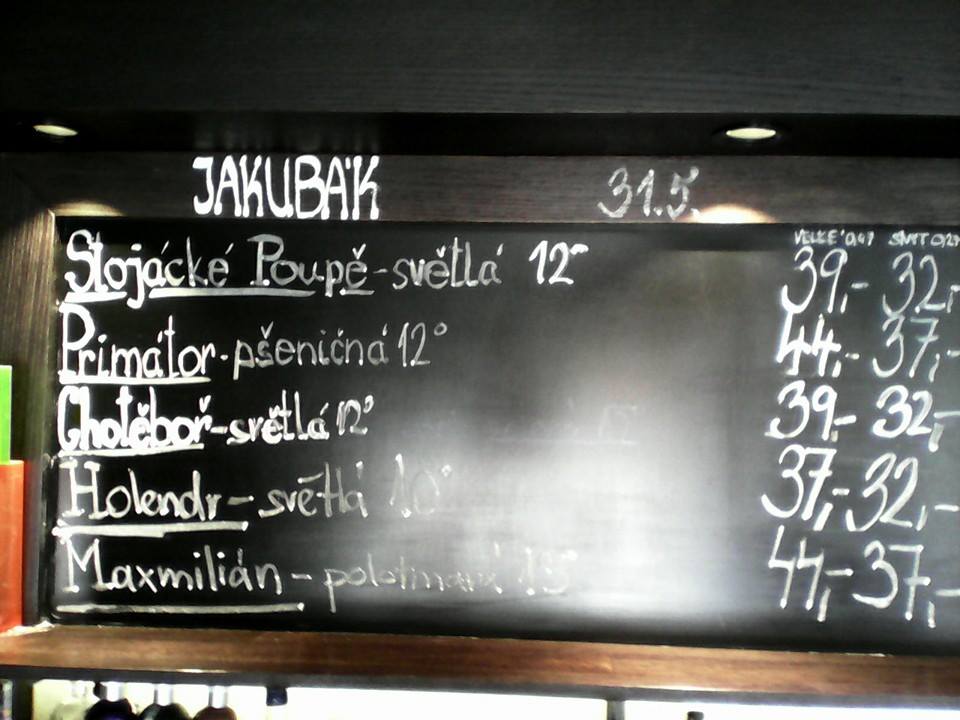 JAKUBÁK 31.5.
VELKÉ 0,4l
Slojácké Poupě - světlá 12° 39,- 32,-
Primátor - pšeničná 12° 44,- 37,-
Chotěboř - světlá 12° 39,- 32,-
Holendr - světlá 10° 37,- 32,-
Maxmilián - polotmavá 13° 44,- 37,-